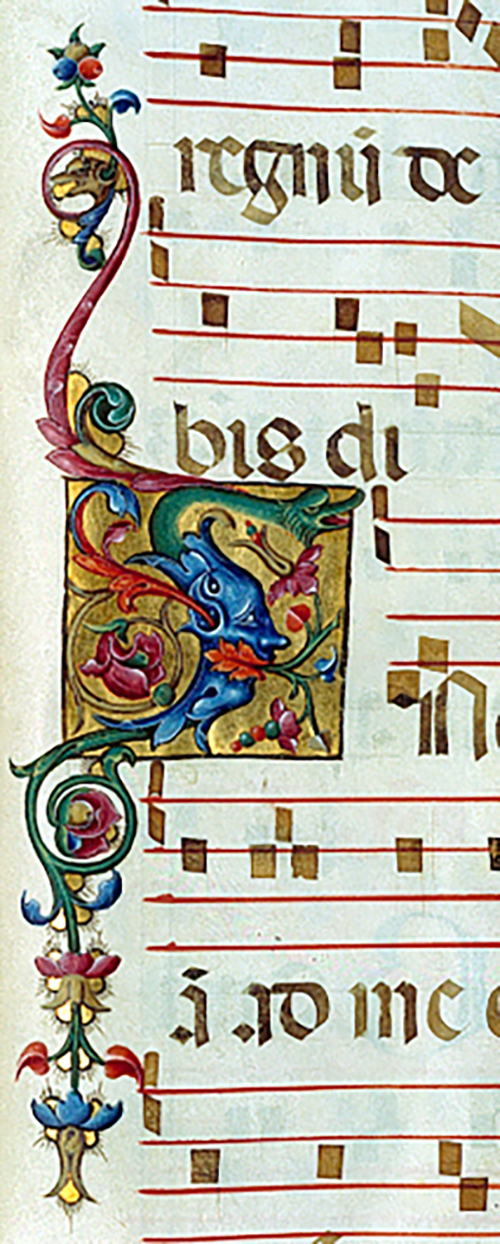 regnū de
bis di
ā ad me